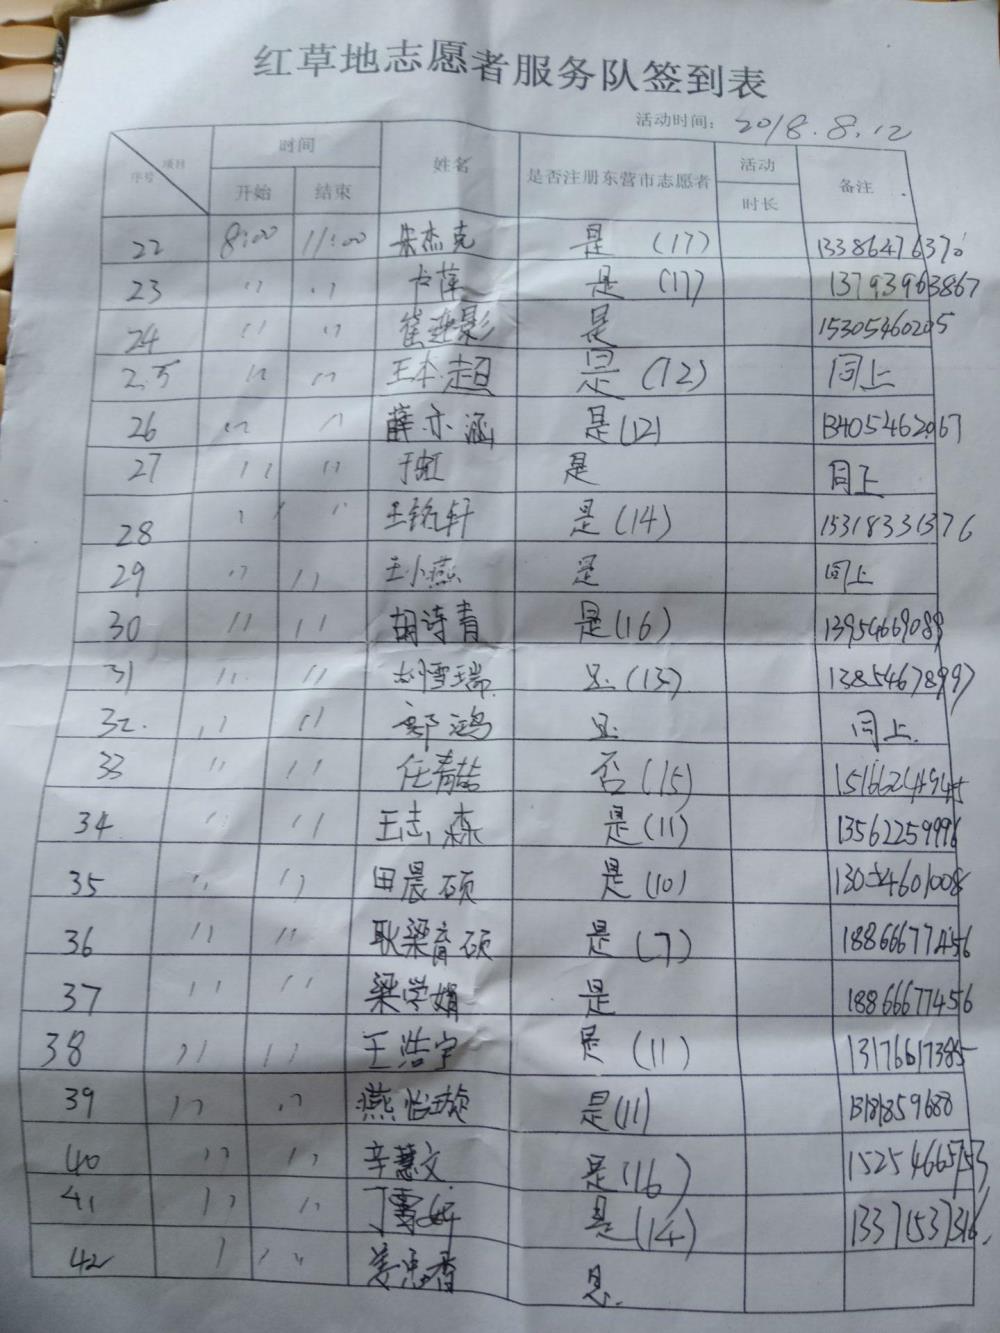 红草地志愿者服务队签到表
活动时间: 2018.8.12
项目 序号 时间 姓名 是否注册东营市志愿者 活动 备注
开始 结束 时长
22 8:00 11:00 朱杰克 是 (17) 13386476370
23 〃 〃 卞萍 是 (17) 13793963867
24 〃 〃 是 15305460205
25 〃 〃 王本超 是 (12) 同上
26 〃 〃 薛亦涵 是(12) 13405462067
27 〃 〃 于虹 是 同上
28 〃 〃 王铭轩 是(14) 15318331376
29 〃 〃 王小燕 是 同上
30 〃 〃 胡诗青 是(16) 13954669089
31 〃 〃 刘雪瑞 是(13) 13854678997
32 〃 〃 郭鸿 是 同上
33 〃 〃 任青喆 否(15)
34 〃 〃 王志森 是(11) 13562259996
35 〃 〃 田晨硕 是(10)
36 〃 〃 耿梁育硕 是(7) 18866677456
37 〃 〃 梁学娟 是 18866677456
38 〃 〃 王浩宇 是 (11) 13176617385
39 〃 〃 燕怡璇 是(11) 13181859688
40 〃 〃 辛慧文 是(16) 15254665753
41 〃 〃 是(14) 13371537316
42 〃 〃 是